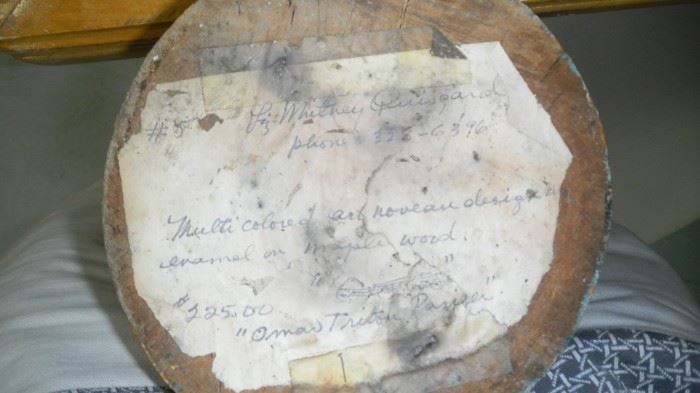 #5 Liz Whitney Quisgard
phone 323-6396
Multi colored art noveau design in
enamel on maple wood.
" "
$225.00
"Omar Triton